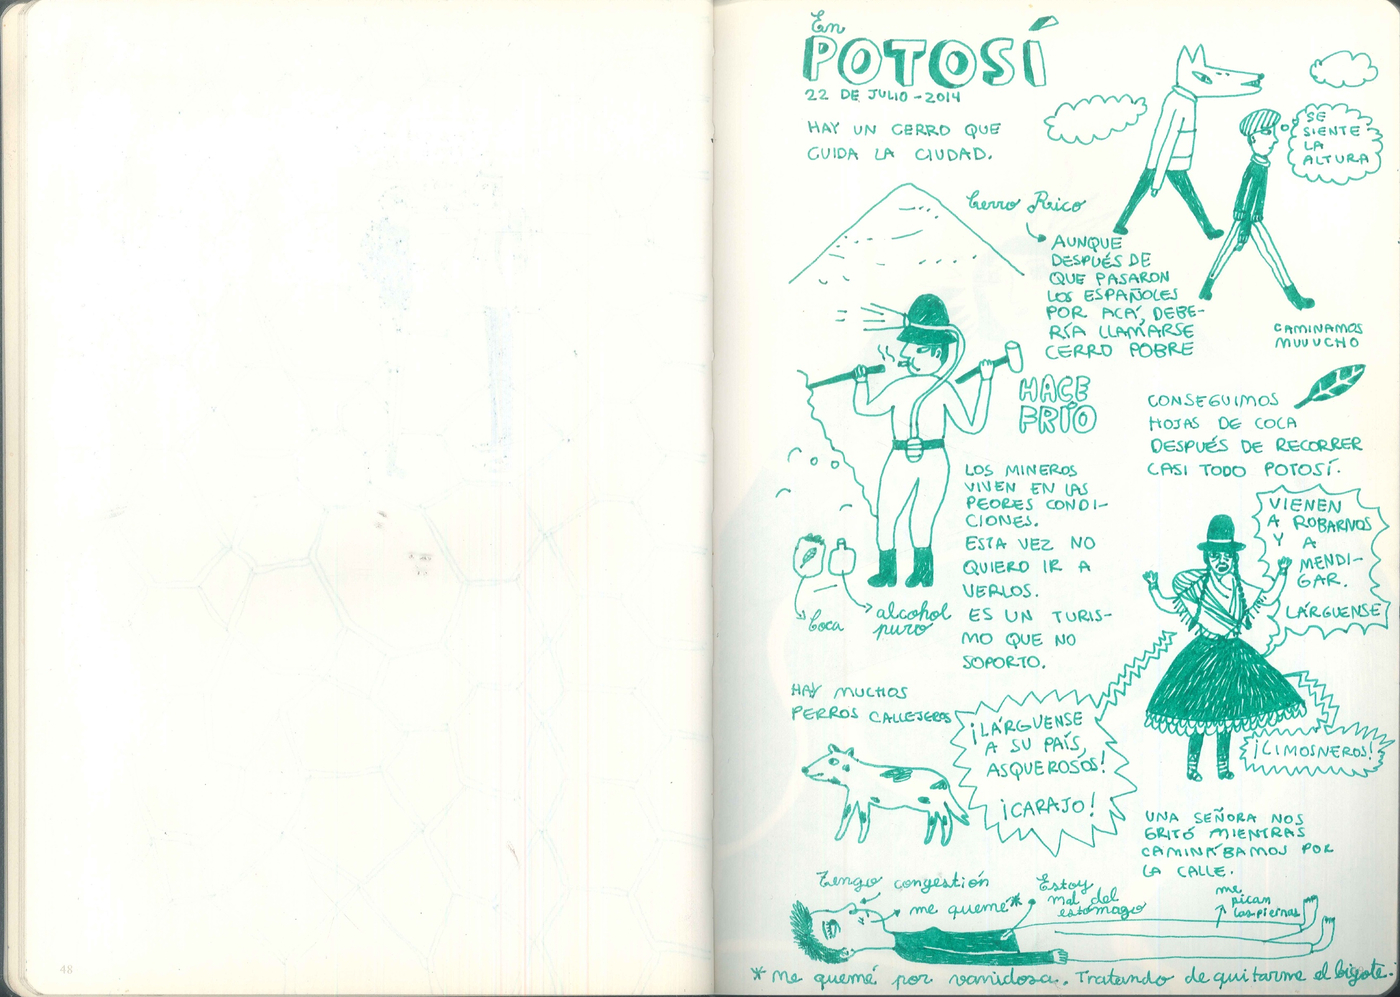 48
En
POTOSÍ
22 DE JULIO - 2014
HAY UN CERRO QUE
CUIDA LA CIUDAD.
SE
SIENTE
LA
ALTURA
Cerro Rico
AUNQUE
DESPUÉS DE
QUE PASARON
LOS ESPAÑOLES
POR ACÁ, DEBE-
RÍA LLAMARSE
CERRO POBRE
CAMINAMOS
MUUUCHO
HACE
FRÍO
CONSEGUIMOS
HOJAS DE COCA
DESPUÉS DE RECORRER
CASI TODO POTOSÍ.
LOS MINEROS
VIVEN EN LAS
PEORES CONDI-
CIONES.
ESTA VEZ NO
QUIERO IR A
VERLOS.
ES UN TURIS-
MO QUE NO
SOPORTO.
Coca
alcohol
puro
VIENEN
A ROBARNOS
Y A
MENDI-
GAR.
LÁRGUENSE
HAY MUCHOS
PERROS CALLEJEROS
¡LÁRGUENSE
A SU PAÍS,
ASQUEROSOS!
¡CARAJO!
¡LIMOSNEROS!
UNA SEÑORA NOS
GRITÓ MIENTRAS
CAMINÁBAMOS POR
LA CALLE.
Tengo congestión
me quemé*
Estoy
mal del
estómago
me
pican
las piernas
* Me quemé por vanidosa. Tratando de quitarme el bigote.